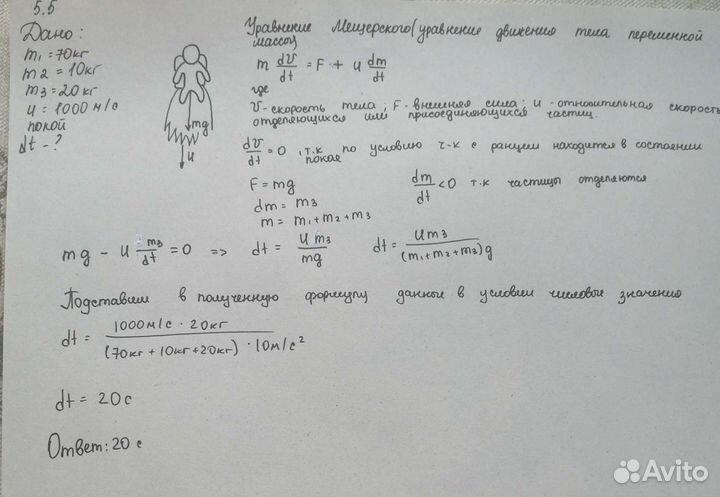 5.5
Дано:
m₁ = 70кг
m2 = 10кг
m₃ = 20кг
u = 1000 м/с
покой
dt - ?
mg
u
Уравнение Мещерского (уравнение движения тела переменной
массы)
m dv/dt = F + u dm/dt
где
v - скорость тела; F - внешняя сила; u - относительная скорость
отделяющихся или присоединяющихся частиц.
dv/dt = 0, т.к по условию ч-к с ранцем находится в состоянии
покоя
F = mg
dm/dt < 0 т.к частицы отделяются
dm = m₃
m = m₁ + m₂ + m₃
mg - u m₃/dt = 0 => dt = u m₃/mg dt = u m₃/(m₁+m₂+m₃)g
Подставим в полученную формулу данные в условии числовые значения
dt = 1000м/с · 20кг/(70кг + 10кг + 20кг) · 10м/с²
dt = 20с
Ответ: 20 с
Avito